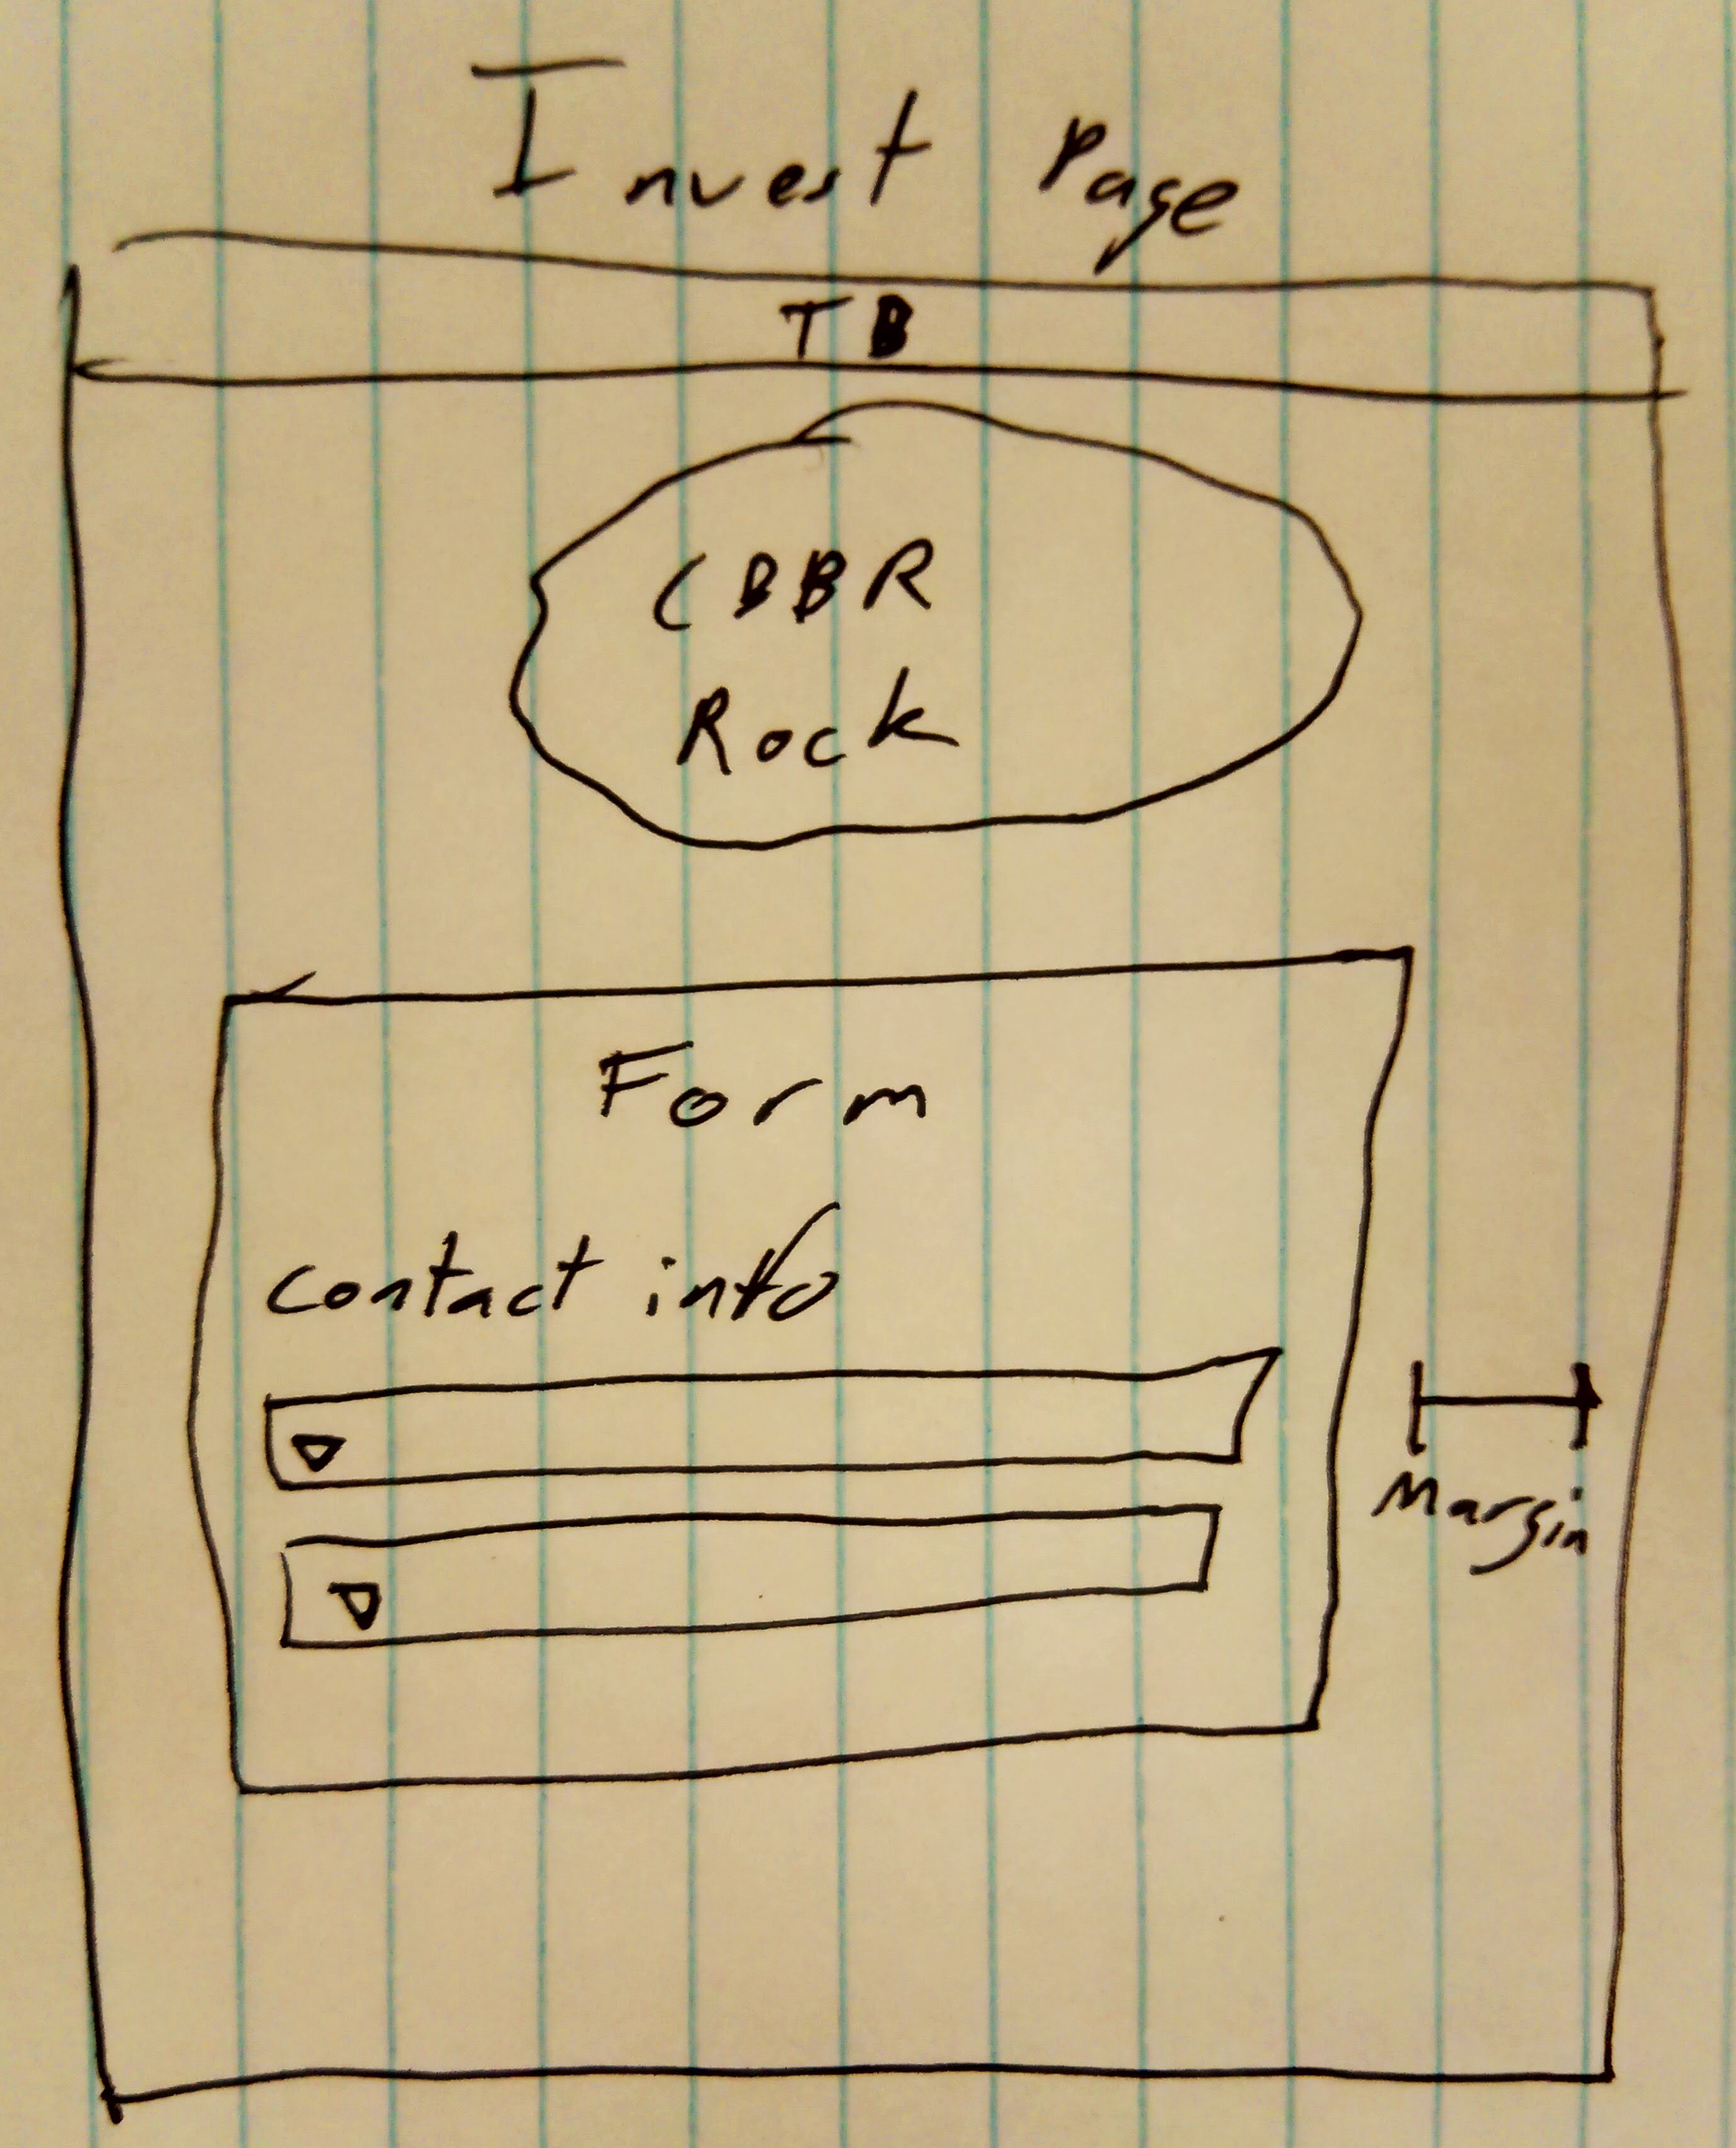 Invest Page
TB
CBBR
Rock
Form
contact info
Margin